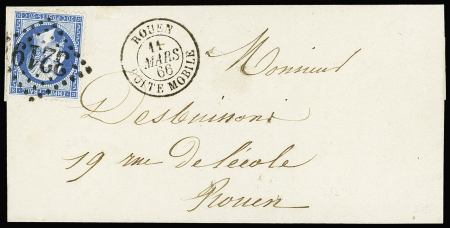 3219
ROUEN
11
MARS
66
BOITE MOBILE
Monsieur
Desbuissons
19 rue de l'école
Rouen